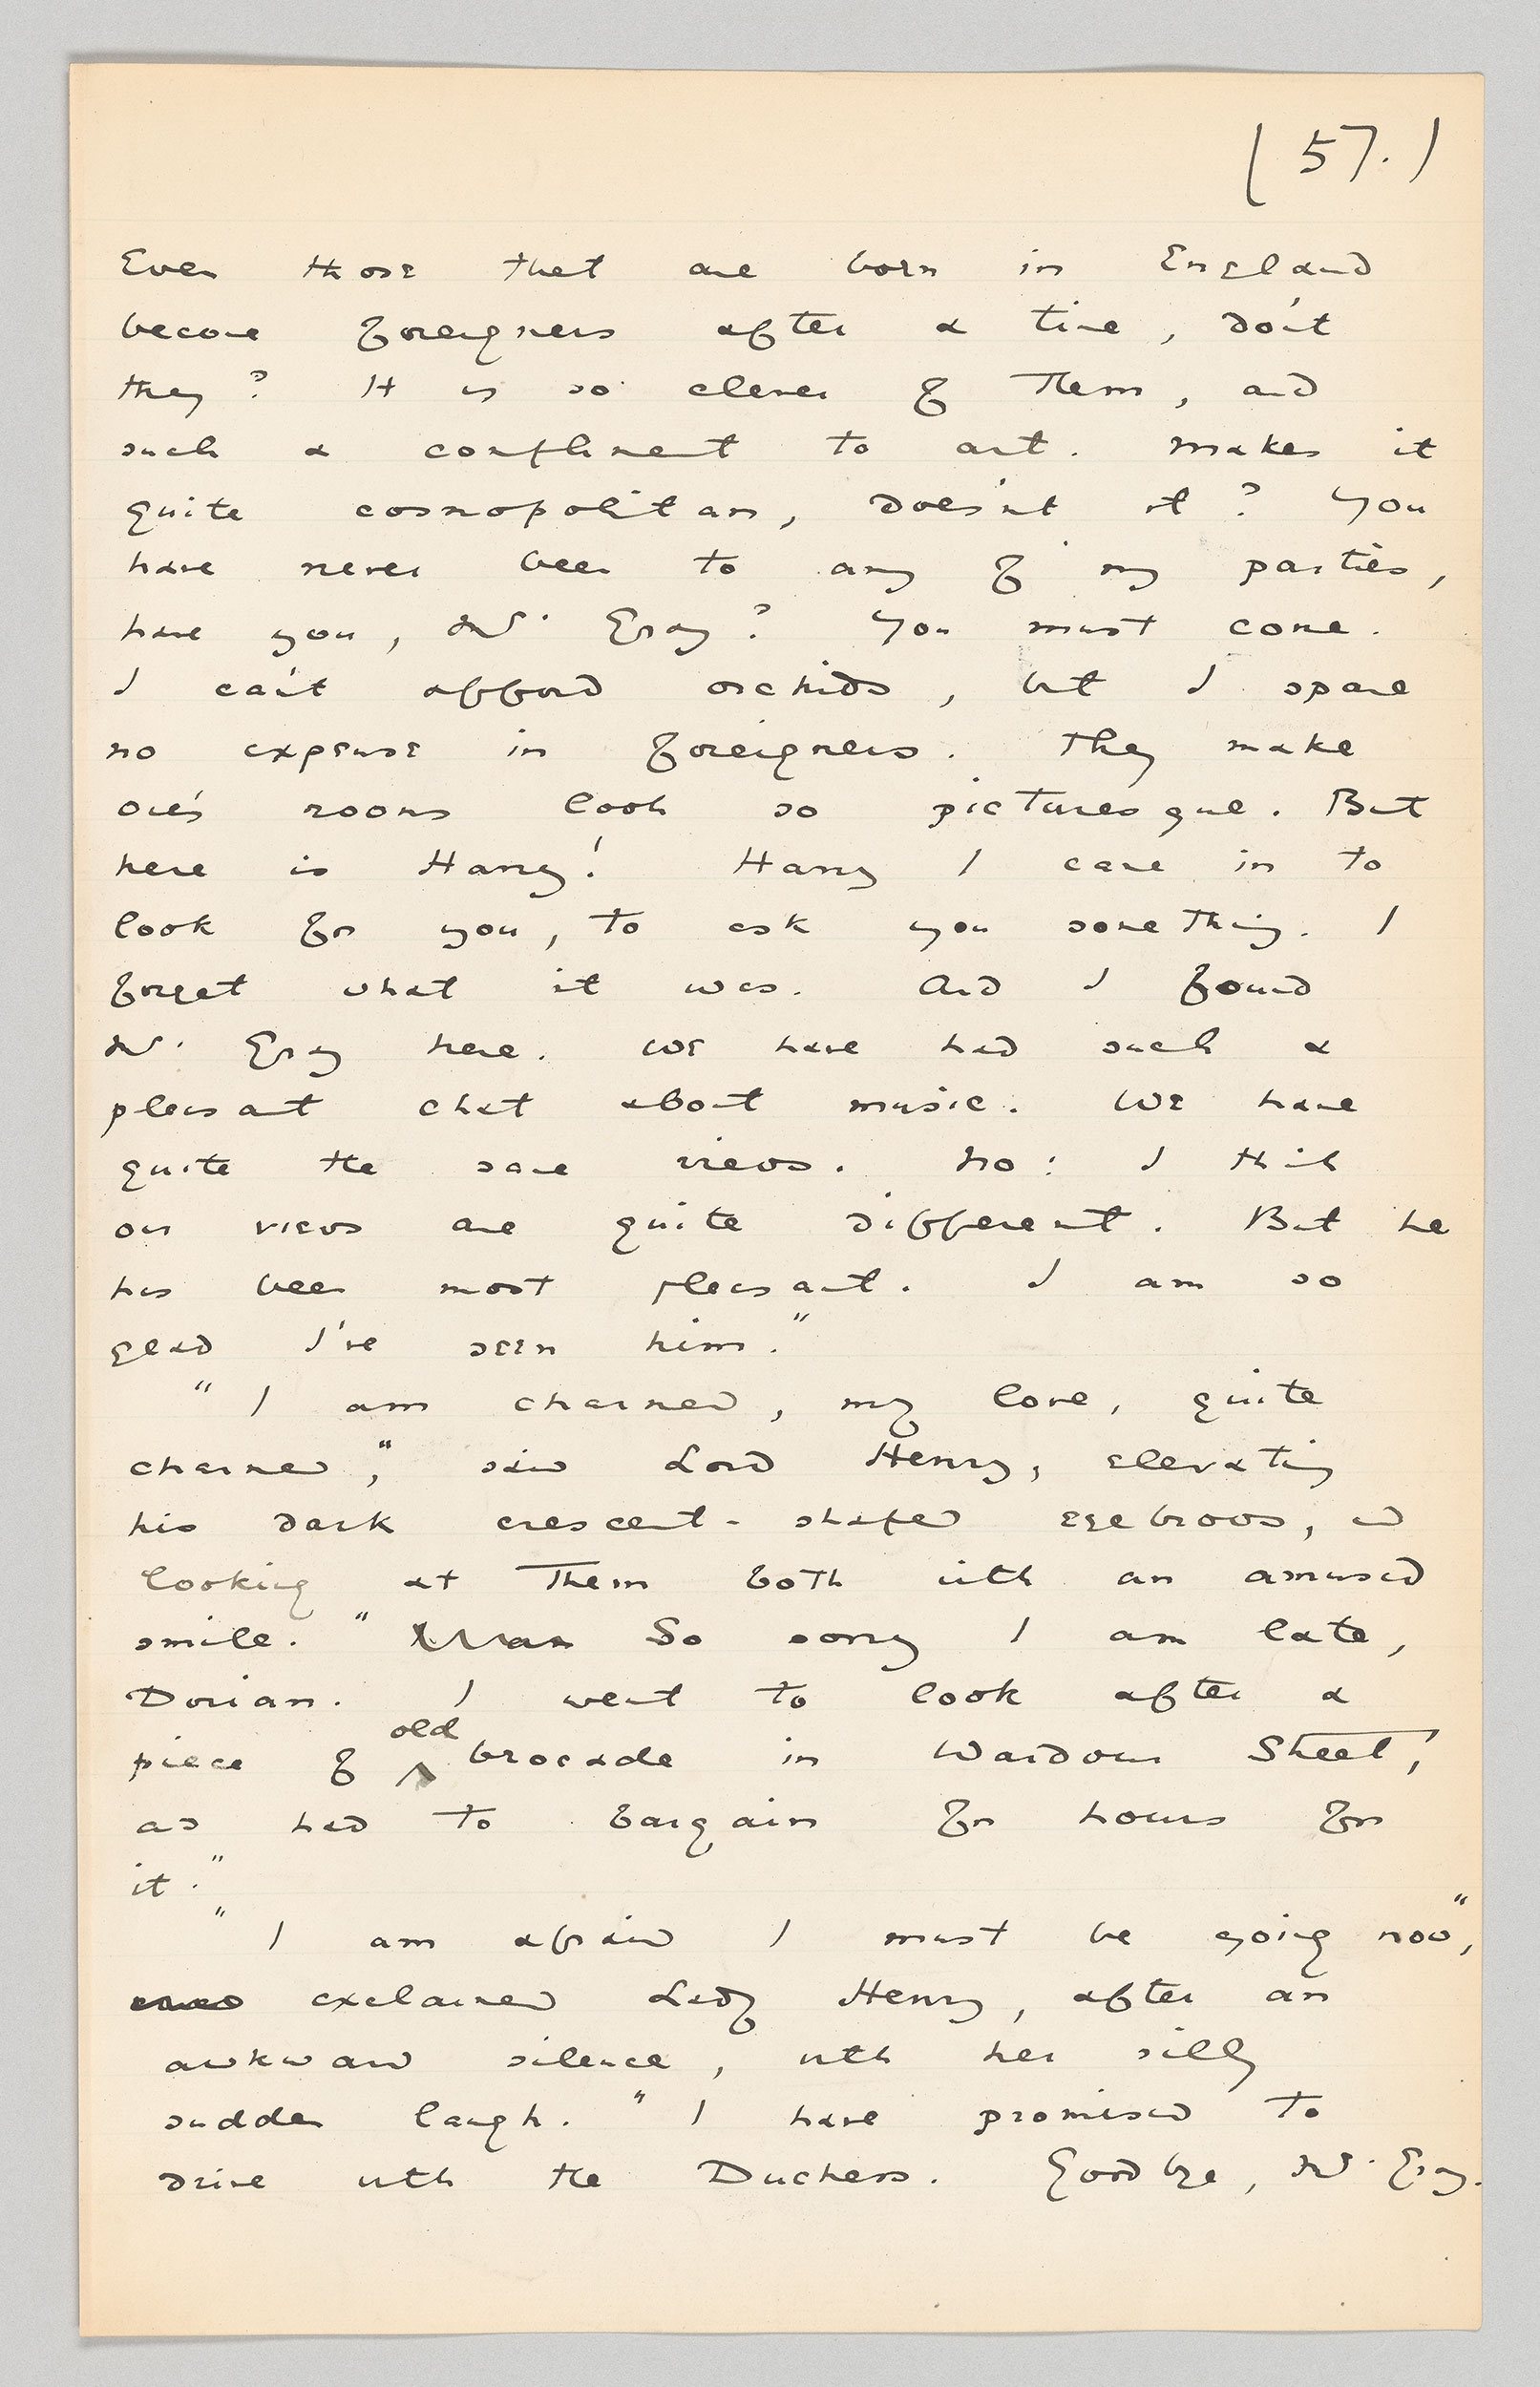 (57.)
Even those that are born in England
become foreigners after a time, don't
they? It is so clever of them, and
such a compliment to art. Makes it
quite cosmopolitan, does'nt it? You
have never been to any of my parties,
have you, Mr. Gray? You must come.
I can't afford orchids, but I spare
no expense in foreigners. They make
one's rooms look so picturesque. But
here is Harry! Harry I came in to
look for you, to ask you something. I
forget what it was. And I found
Mr. Gray here. We have had such a
pleasant chat about music. We have
quite the same views. No: I think
our views are quite different. But he
has been most pleasant. I am so
glad I've seen him."
"I am charmed, my love, quite
charmed," said Lord Henry, elevating
his dark crescent-shaped eyebrows, and
looking at them both with an amused
smile. " So sorry I am late,
Dorian. I went to look after a
piece of old brocade in Wardour Street,
as had to bargain for hours for
it."
"I am afraid I must be going now",
exclaimed Lady Henry, after an
awkward silence, with her silly
sudden laugh. "I have promised to
drive with the Duchess. Goodbye, Mr. Gray.